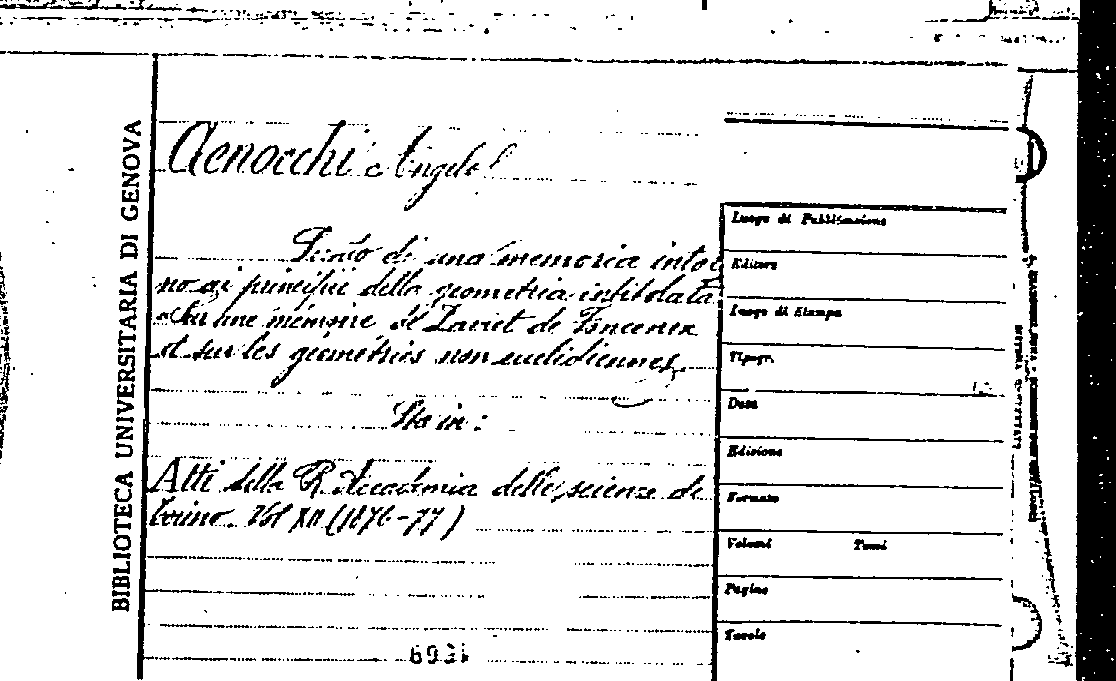 BIBLIOTECA UNIVERSITARIA DI GENOVA
Genocchi Angelo
Sunto di una memoria intor
no ai principii della geometria intitolata
"Sur une mémoire de Daviet de Foncenex
et sur les géométries non euclidiennes
Sta in:
Atti della R. Accademia delle scienze di
Torino. Vol XII (1876-77)
Luogo di Pubblicazione
Editore
Luogo di Stampa
Tipogr.
Data
Edizione
Formato
Volumi Tomi
Pagine
Tavole